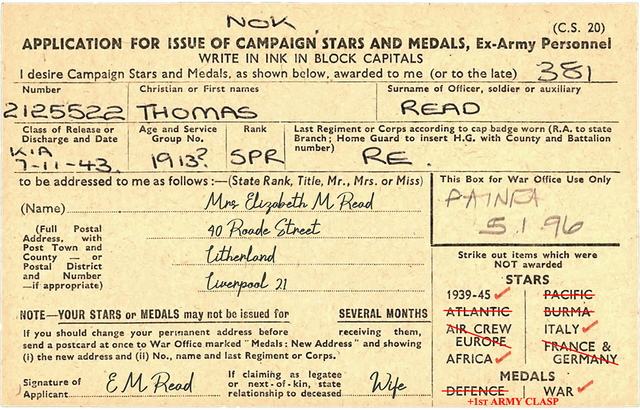 NOK
(C.S. 20)
APPLICATION FOR ISSUE OF CAMPAIGN STARS AND MEDALS, Ex-Army Personnel
WRITE IN INK IN BLOCK CAPITALS
I desire Campaign Stars and Medals, as shown below, awarded to me (or to the late) 381
Number Christian or First names Surname of Officer, soldier or auxiliary
2125522 THOMAS READ
Class of Release or Discharge and Date
Age and Service Group No.
Rank
Last Regiment or Corps according to cap badge worn (R.A. to state Branch; Home Guard to insert H.G. with County and Battalion number)
KIA
7-11-43. 1913? SPR RE.
to be addressed to me as follows :—(State Rank, Title, Mr., Mrs. or Miss)
(Name) Mrs Elizabeth M Read
(Full Postal Address, with Post Town and County — or Postal District and Number —if appropriate)
40 Roade Street
Litherland
Liverpool 21
This Box for War Office Use Only
5.1.96
Strike out items which were
NOT awarded
STARS
1939-45 PACIFIC
ATLANTIC BURMA
AIR CREW EUROPE ITALY
AFRICA FRANCE & GERMANY
MEDALS
DEFENCE WAR
+1st ARMY CLASP
NOTE—YOUR STARS or MEDALS may not be issued for SEVERAL MONTHS
If you should change your permanent address before receiving them,
send a postcard at once to War Office marked "Medals: New Address" and showing
(i) the new address and (ii) No., name and last Regiment or Corps.
Signature of Applicant E M Read
If claiming as legatee or next-of-kin, state relationship to deceased Wife